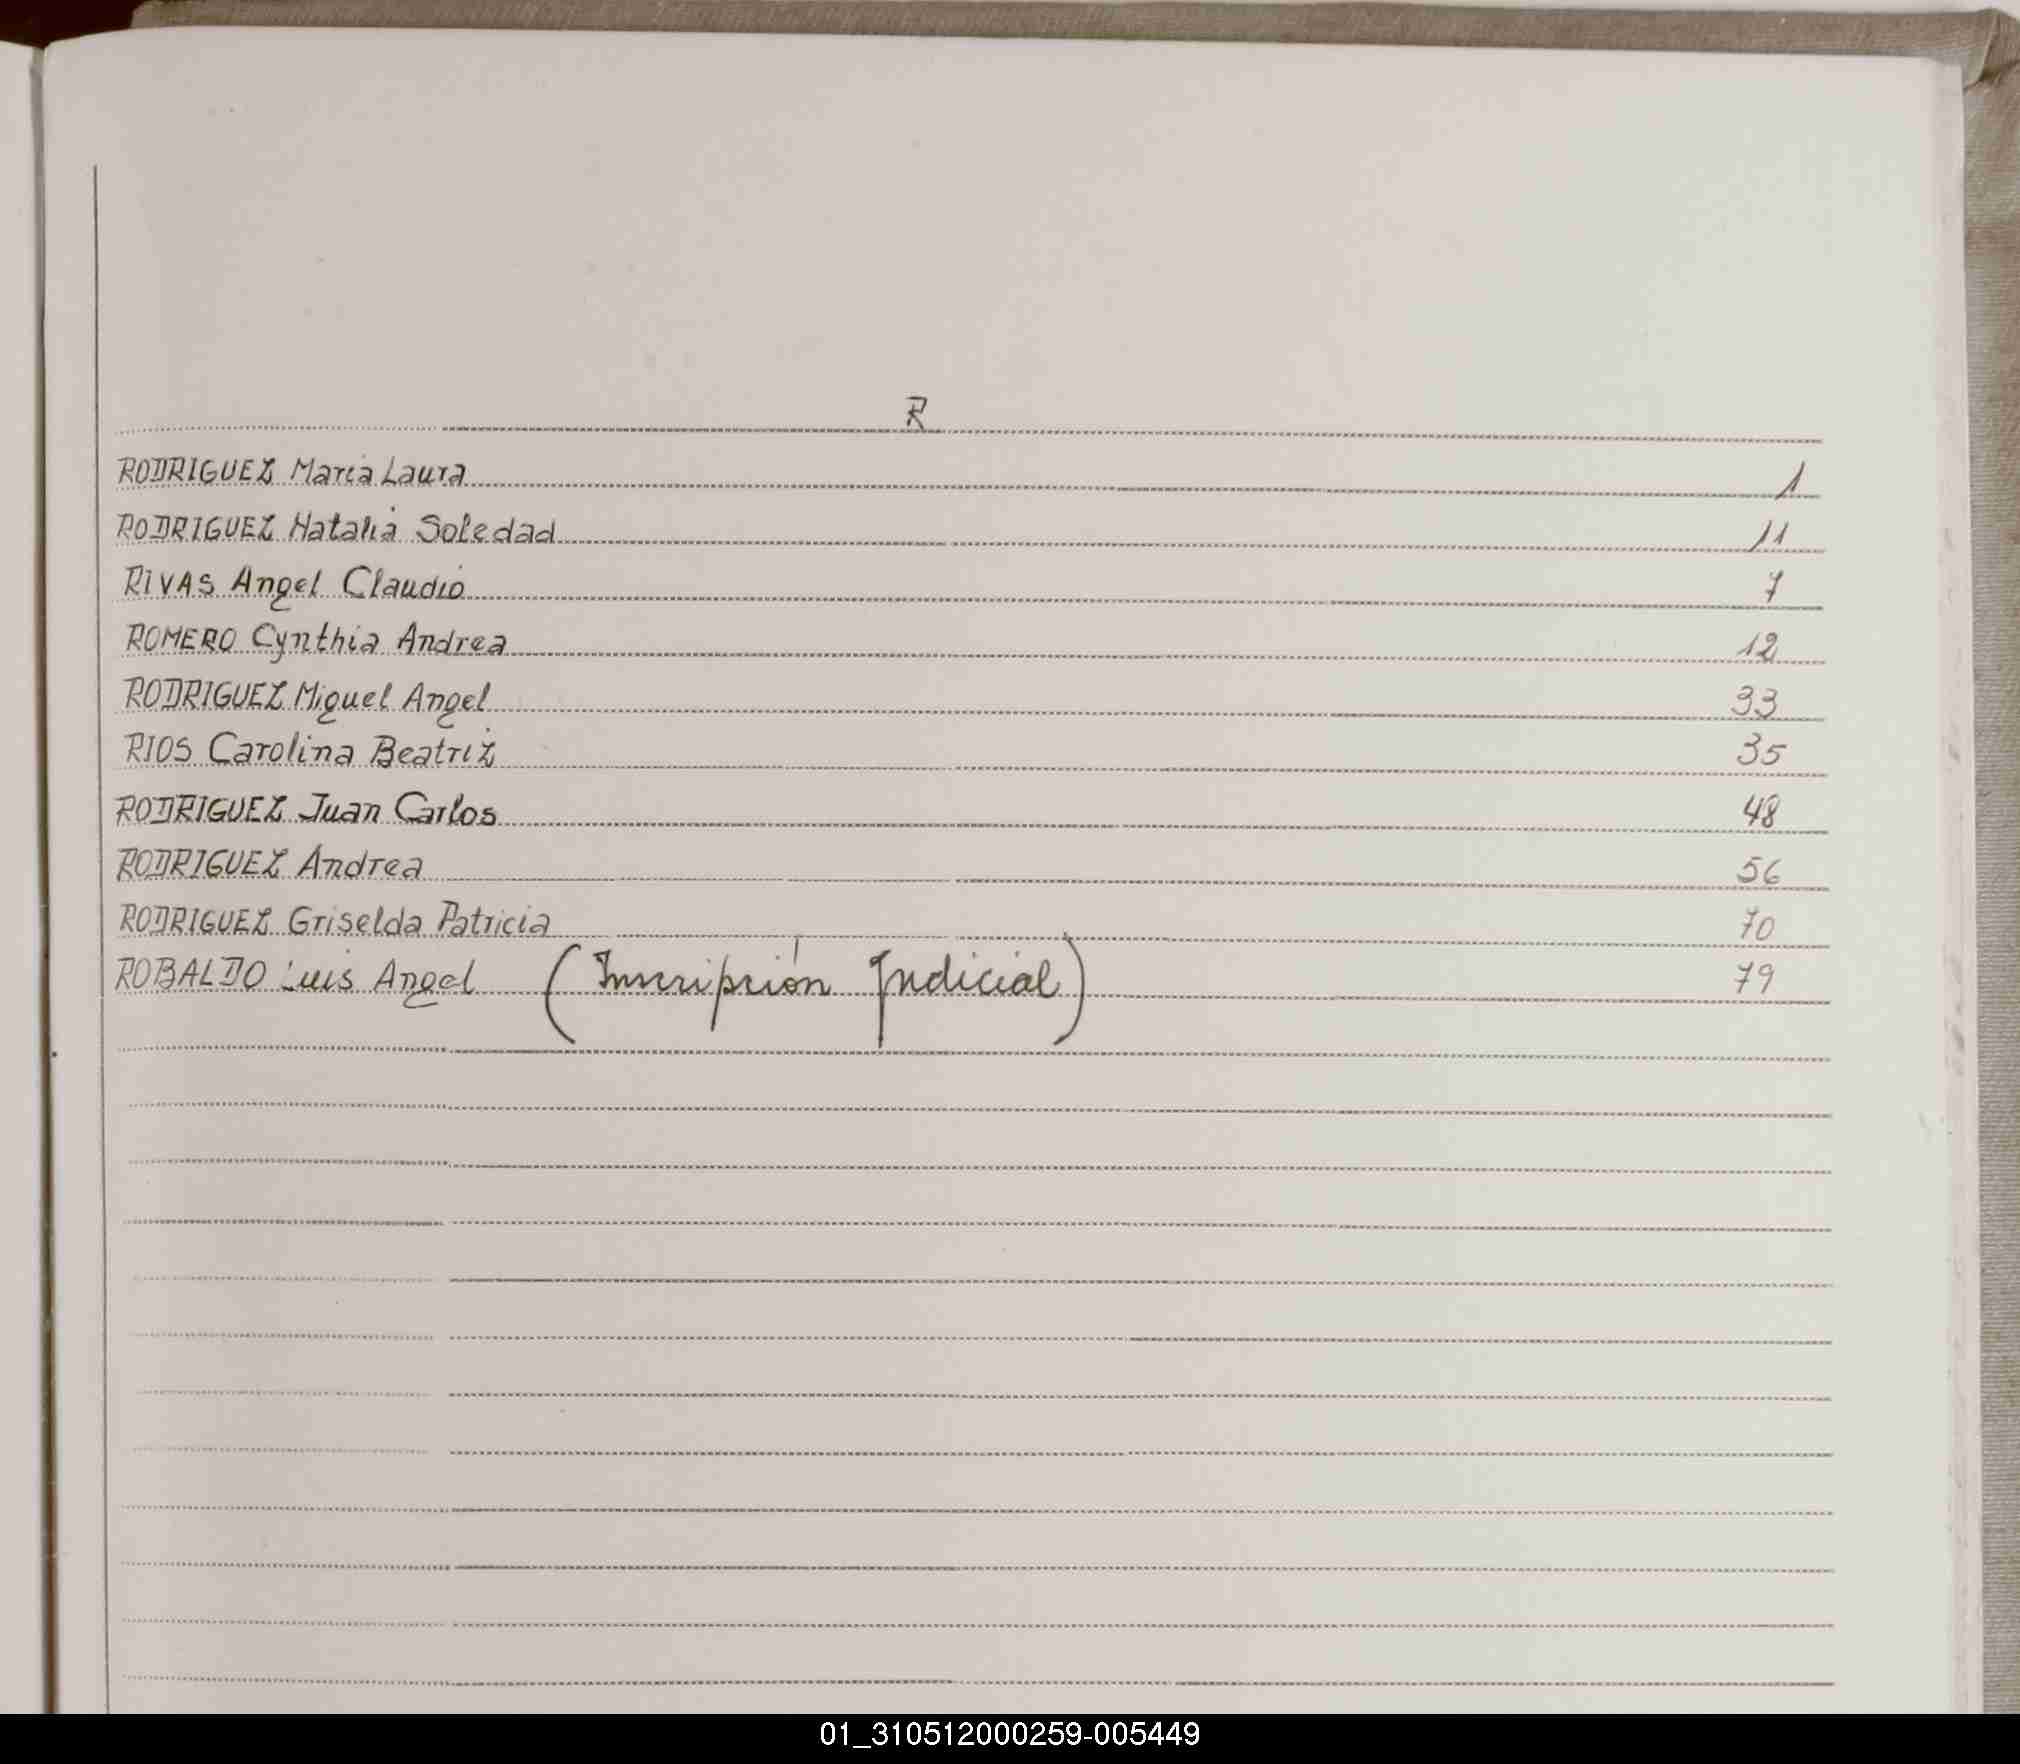 R
RODRIGUEZ Maria Laura 1
RODRIGUEZ Natalia Soledad 11
RIVAS Angel Claudio 7
ROMERO Cynthia Andrea 12
RODRIGUEZ Miguel Angel 33
RIOS Carolina Beatriz 35
RODRIGUEZ Juan Carlos 48
RODRIGUEZ Andrea 56
RODRIGUEZ Griselda Patricia 70
ROBALDO Luis Angel (Inscripción Judicial) 79
01_310512000259-005449